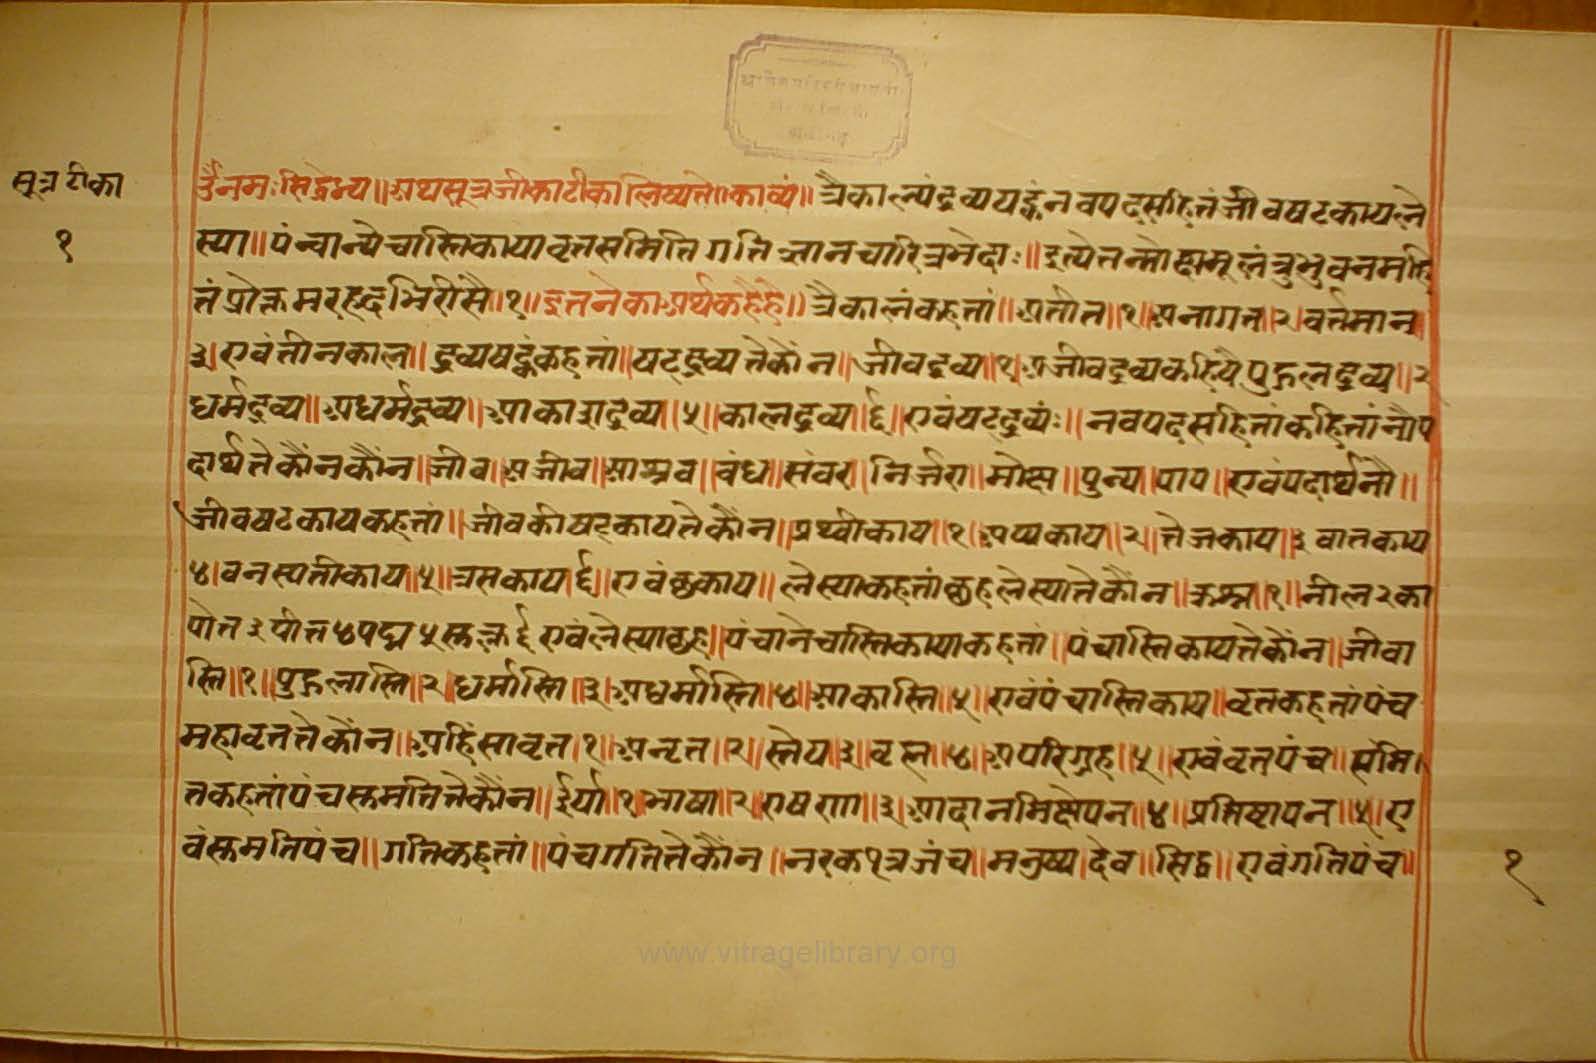 सूत्र टीका
१
उँनमःसिद्धेभ्य॥अथसूत्रजीकाटीकालिष्यते॥काव्यं॥ त्रैकाल्यंद्रव्यषट्कंनवपदसहितंजीवषटकायले
स्या॥पंचान्येचास्तिकायावृतसमितिगतिज्ञानचारित्रभेदाः॥इत्येतन्मोक्षमूलंत्रुभुवनमहि
तंप्रोक्तमरहदभिरीसै॥१॥इतनेकाअर्थकहैहै॥त्रैकालंकहतां॥अतीत॥१॥अनागत॥२।वर्तमान
३।एवंतीनकाल॥द्रव्यषट्कंकहतां॥षटद्रव्यतेकौंन॥जीवद्रव्य॥१।अजीवद्रव्यकहियैपुद्गलद्रव्य॥२
धर्मद्रव्य॥अधर्मद्रव्य॥आकाशद्रव्य॥५॥कालद्रव्य॥६॥एवंषटद्रव्यंः॥नवपदसहितांकहितांनौप
दार्थतेकौंनकौंन॥जीव॥अजीव॥आश्रव॥बंध॥संवर॥निर्जरा॥मोक्ष॥पुन्य॥पाप॥एवंपदार्थनौ॥
जीवषटकायकहतां॥जीवकीषट्कायतेकौंन॥प्रथ्वीकाय॥१॥अप्यकाय॥२॥तेजकाय॥३वातकाय
४।वनस्पतीकाय॥५॥त्रसकाय।६॥एवंछकाय॥लेस्याकहतांछहलेस्यातेकौंन॥क्रश्न॥१॥नील२का
पोत३पीत४पद्म५सुक्ल६एवंलेस्याछह॥पंचानेचास्तिकायाकहतां॥पंचास्तिकायतेकौंन॥जीवा
स्ति॥१॥पुद्गलास्ति॥२॥धर्मास्ति॥३॥अधर्मास्ति॥४॥आकास्ति॥५॥एवंपंचास्तिकाय॥वृतकहतांपंच
महावृततेकौंन॥अहिंसावृत॥१॥अनृत॥२॥स्तेय॥३॥वृह्म॥४॥अपरिग्रह॥५॥एवंवृतपंच॥संमि।
तकहतांपंचसुमतितेकौंन॥ईर्या॥१॥भाषा॥२॥एषणा॥३॥आदाननिक्षेपन॥४॥प्रतिष्टापन॥५॥ए
वंसुमतिपंच॥गतिकहतां॥पंचगतितेकौंन॥नरक१त्रजंच॥मनुष्य।देव॥सिद्ध॥एवंगतिपंच॥
१
www.vitragelibrary.org